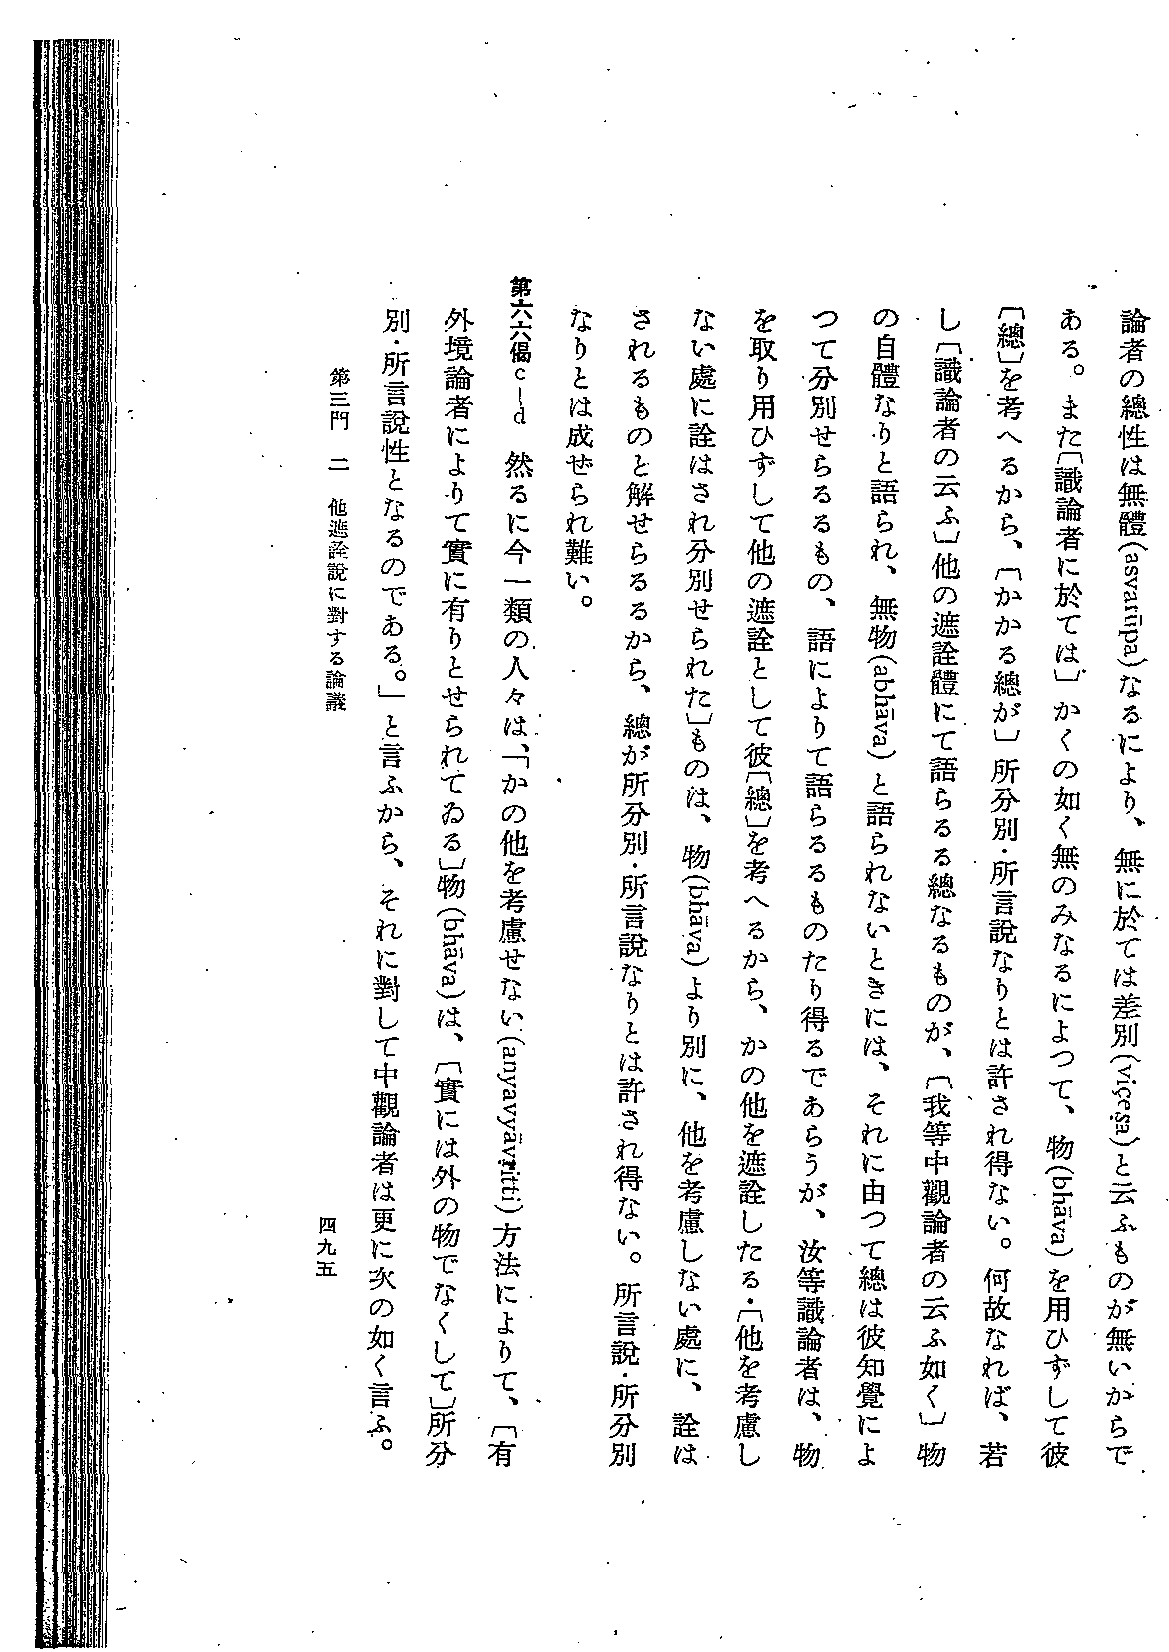 論者の總性は無體(asvarūpa)なるにより、無に於ては差別(viçeṣa)と云ふものが無いからで
ある。また〔識論者に於ては〕かくの如く無のみなるによつて、物(bhāva)を用ひずして彼
〔總〕を考へるから、〔かかる總が〕所分別・所言說なりとは許され得ない。何故なれば、若
し〔識論者の云ふ〕他の遮詮體にて語らるる總なるものが、〔我等中觀論者の云ふ如く〕物
の自體なりと語られ、無物(abhāva)と語られないときには、それに由つて總は彼知覺によ
つて分別せらるるもの、語によりて語らるるものたり得るであらうが、汝等識論者は、物
を取り用ひずして他の遮詮として彼〔總〕を考へるから、かの他を遮詮したる・〔他を考慮し
ない處に詮はされ分別せられた〕ものは、物(bhāva)より別に、他を考慮しない處に、詮は
されるものと解せらるるから、總が所分別・所言說なりとは許され得ない。所言說・所分別
なりとは成ぜられ難い。
第六六偈c—d 然るに今一類の人々は、「かの他を考慮せない(anyavyāvṛitti)方法によりて、〔有
外境論者によりて實に有りとせられてゐる〕物(bhāva)は、〔實には外の物でなくして〕所分
別・所言說性となるのである。」と言ふから、それに對して中觀論者は更に次の如く言ふ。
第三門 二 他遮詮說に對する論議
四九五